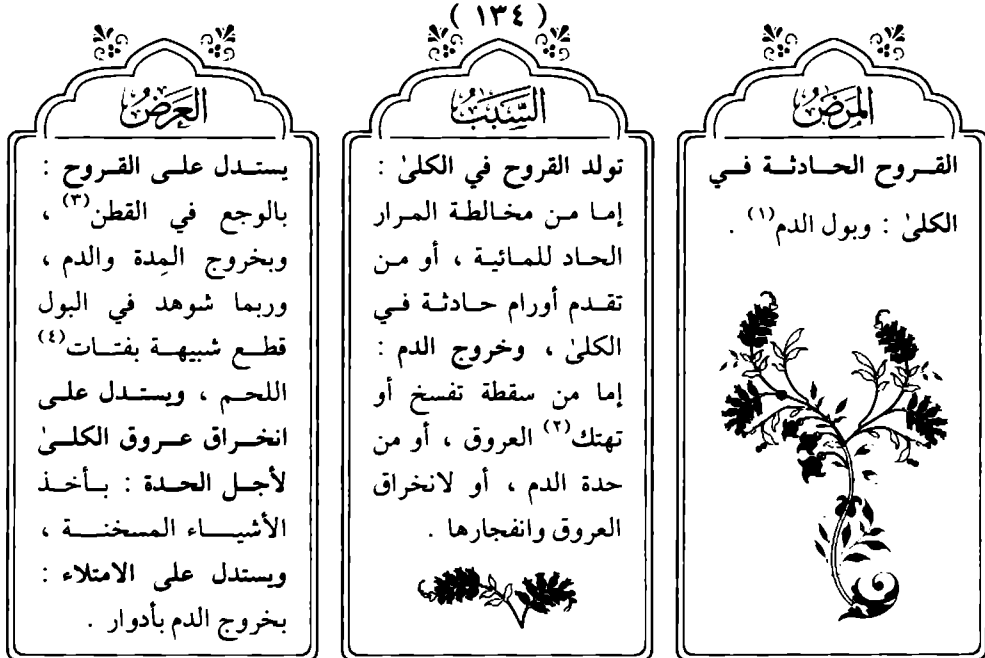 ( ١٣٤ )
المَرَضُ
القروح الحادثة في
الكلىٰ : وبول الدم(١) .
السَّبَبُ
تولد القروح في الكلىٰ :
إما من مخالطة المرار
الحاد للمائية ، أو من
تقدم أورام حادثة في
الكلىٰ ، وخروج الدم :
إما من سقطة تفسخ أو
تهتك(٢) العروق ، أو من
حدة الدم ، أو لانخراق
العروق وانفجارها .
العَرَضُ
يستدل على القروح :
بالوجع في القطن(٣) ،
وبخروج المِدة والدم ،
وربما شوهد في البول
قطع شبيهة بفتات(٤)
اللحم ، ويستدل على
انخراق عروق الكلىٰ
لأجل الحدة : بأخذ
الأشياء المسخنة ،
ويستدل على الامتلاء :
بخروج الدم بأدوار .